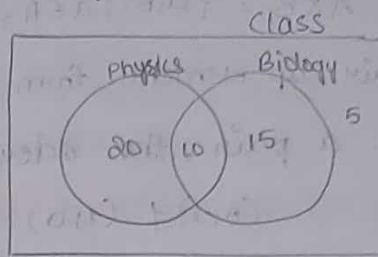 Class
Physics Biology
20 10 15 5